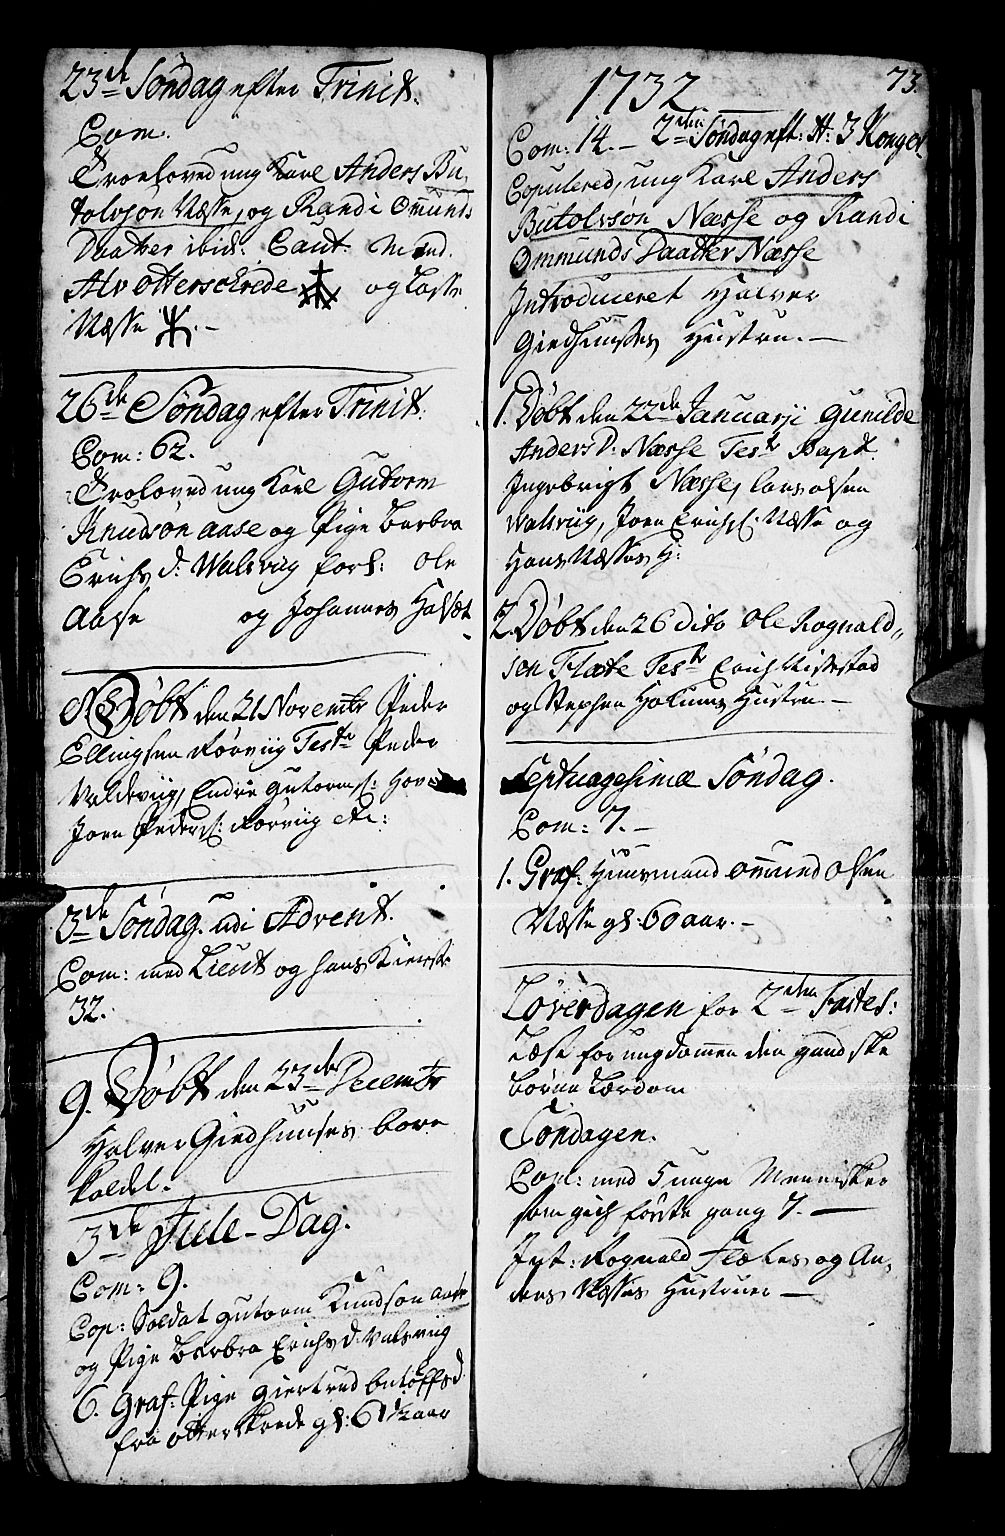 23de Søndag efter Trinit.
Com.
Troeloved ung Karl Anders Bu,
tolvson Næsse, og Randi Omunds
Daatter ibid: Caut. Mend.
Alv Otterschrede og Lasse
Næsse
26de Søndag efter Trinit.
Com: 62.
Troloved ung Karl Gutorm
Knudsøn Aase og Pige Barbra
Erichs d: Walsviig forl: Ole
Aase og Johannes Halset
Døbt den 21 Novembr Peder
Ellingsen Rørviig Teste Peder
Valdeviig, Endre Gutorms:
Joen Peders: Rørviig etc:
3de Søndag udi Advent.
Com: med Lieut og hans Kieriste
32.
9. Døbt den 23de Decembr
Halver Giedhuuses barn
kaldet.
3de Jule-Dag.
Com: 9.
Cop: Soldat Gutorm Knudsøn Aase
og Pige Barbra Erichs d: Valsviig
6. Graf: Pige Giertrud butolfsd
fra Otterskrede gl: 61½ aar
1732
73.
Com: 14. — 2den Søndag eft: H: 3 Konger
Copulered, ung Karl Anders
Butolvsøn Næsse og Randi
Ommunds Daatter Næsse
Introduceret Halver
Giedhuuses Hustru. —
1. Døbt den 22de Januarii Gunilde
Anders D: Næsse Teste Bapt.
Ingebrigt Næsse, Lars Olsen
Walsviig, Joen Erichs: Næsse og
Hans Næsses H:
2. Døbt den 26 dito Ole Rognald„
sen Flæte Teste Erich
og Stephen Hustru —
Septuagesimæ Søndag.
Com: 7. —
1. Graf: Huusmand Ommund Olsen
Næsse gl: 60 aar. —
Løverdagen for 2den Fastes:
Læst for ungdommen den gandske
børne Lærdom
Søndagen.
Com: med 5 unge Mennisker
som gich første gang 7. —
Int: Rognald Flætes og An,
ders Næsses Hustruer —